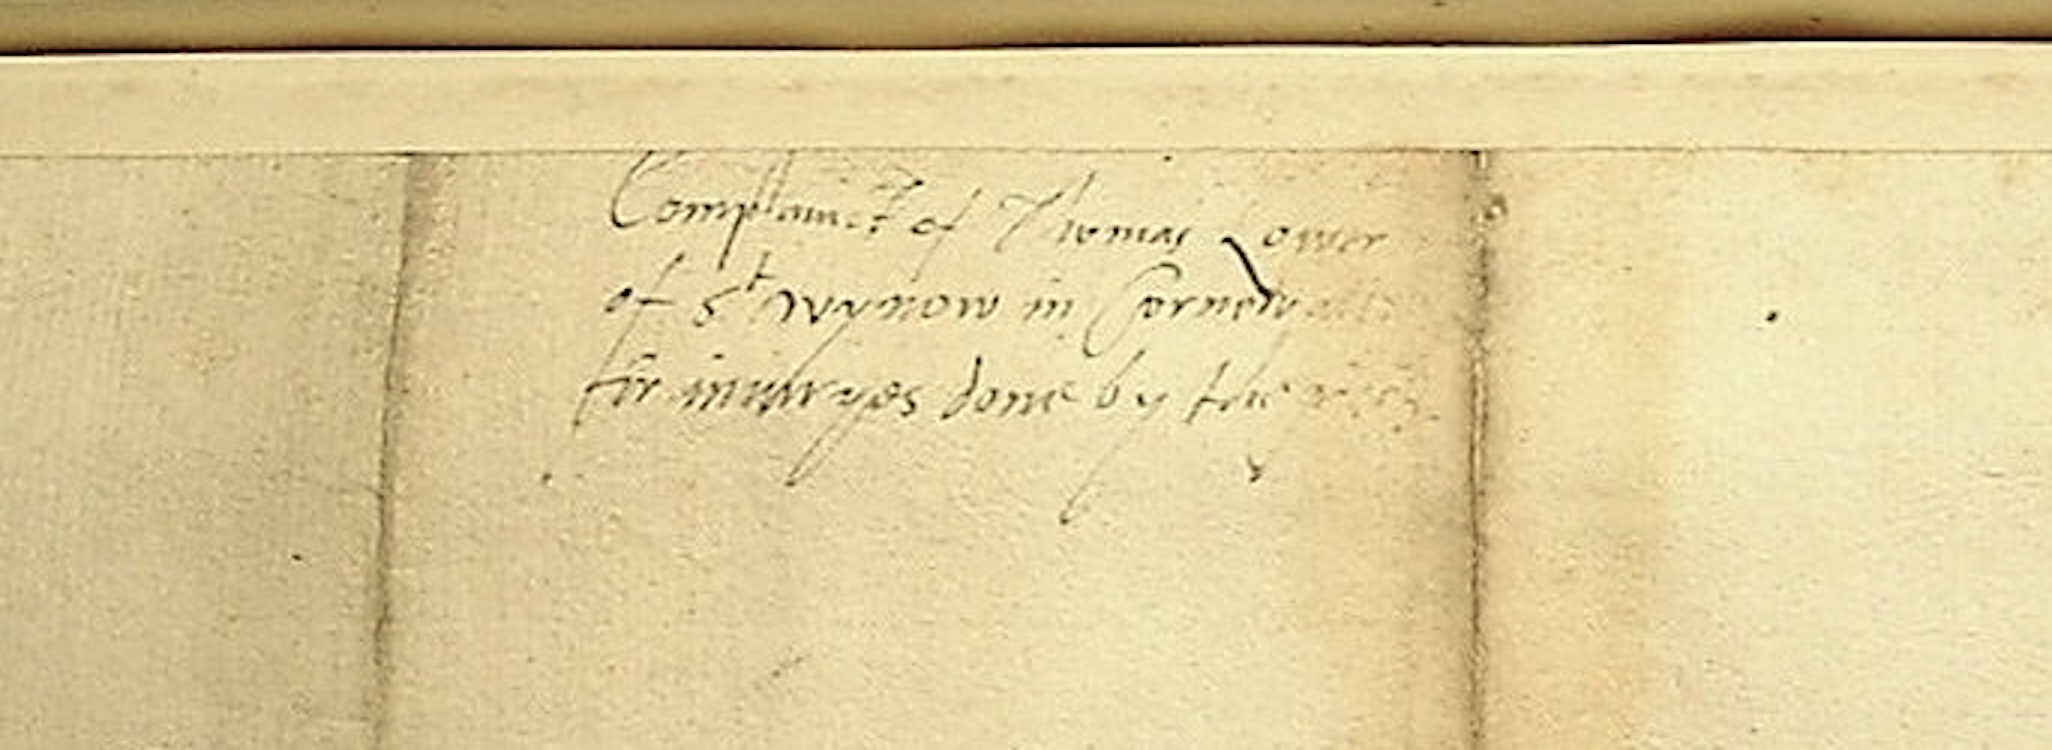 Complainct of Thomas Lower
of St Wynow in Cornewall
for iniuryes done by the